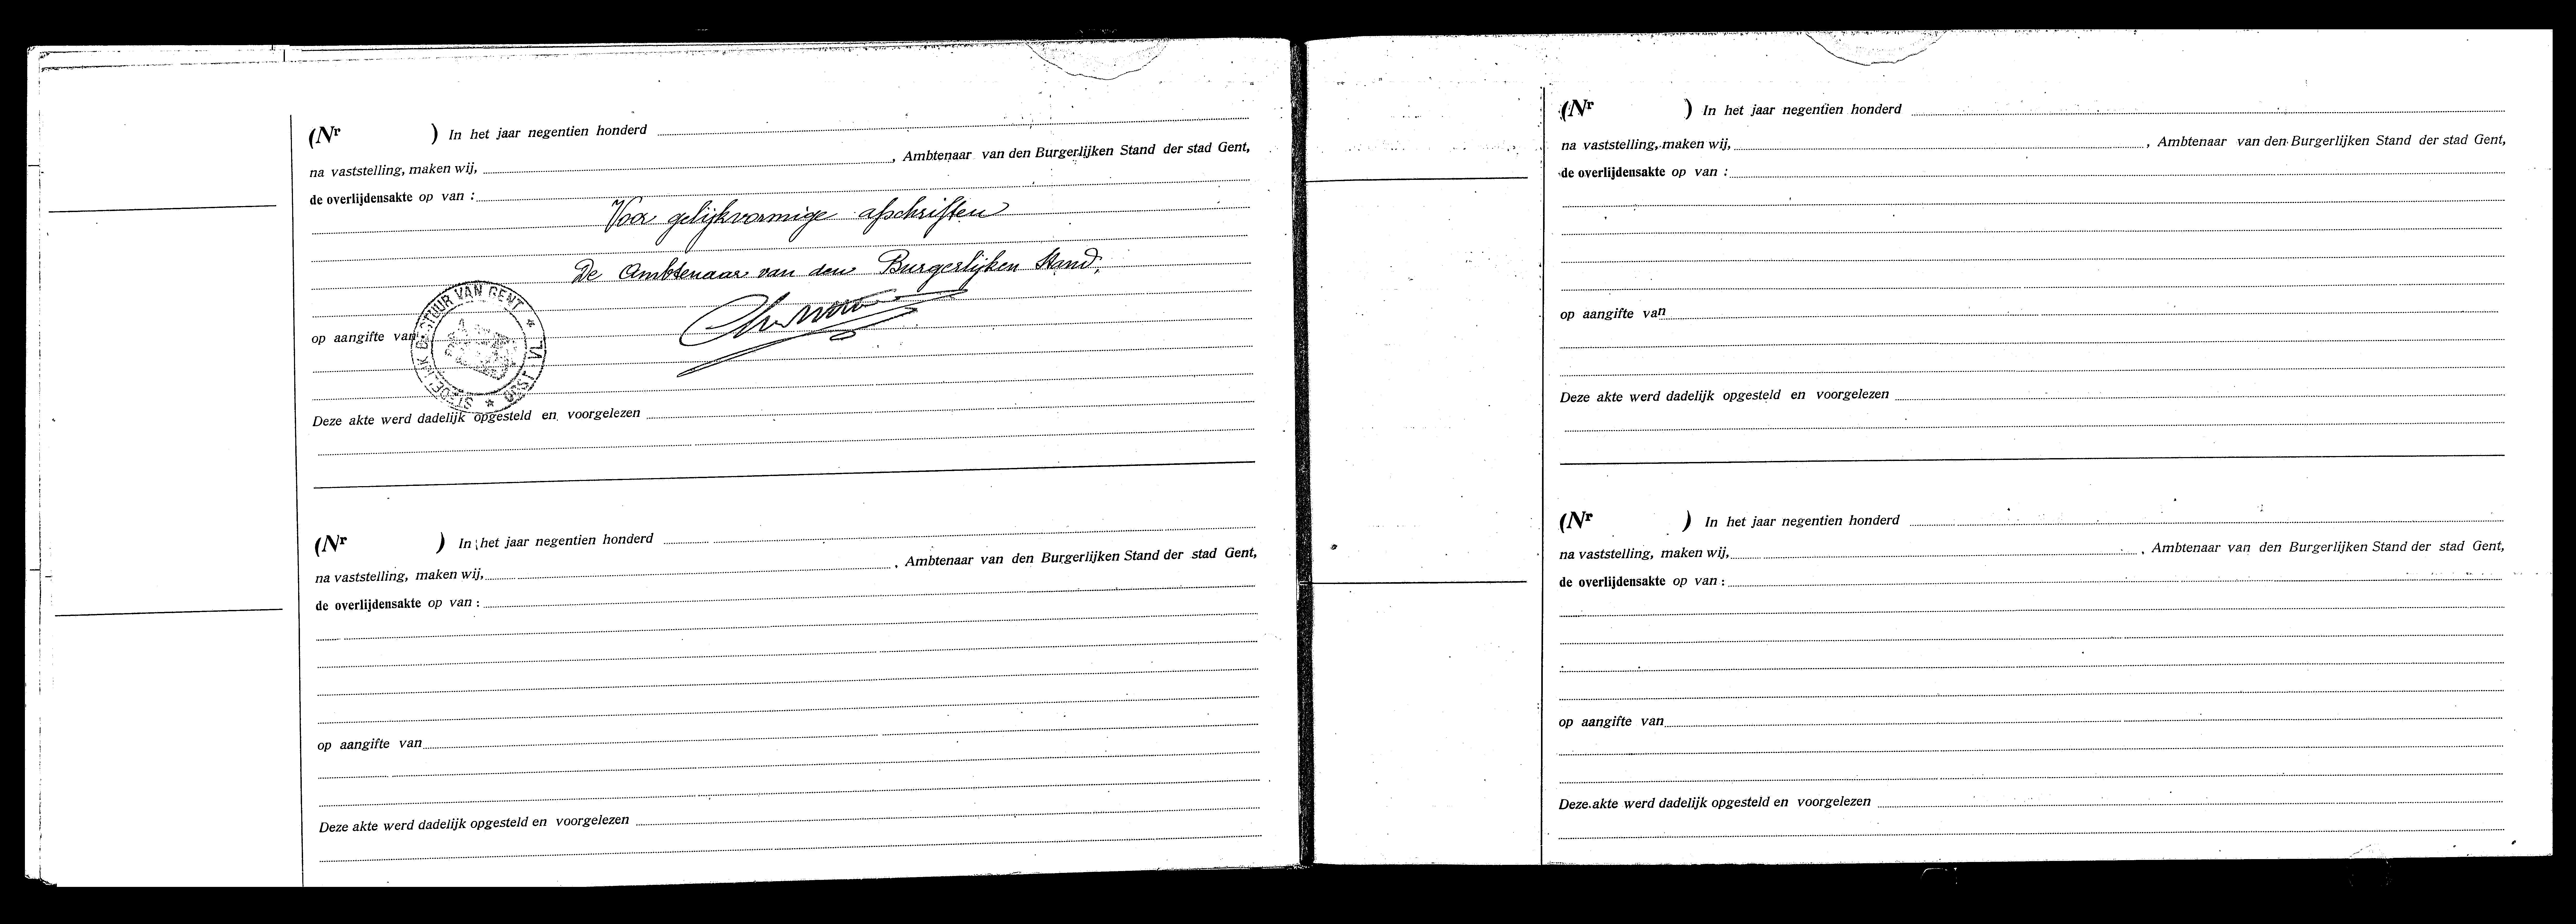 (Nr ) In het jaar negentien honderd
na vaststelling, maken wij, , Ambtenaar van den Burgerlijken Stand der stad Gent,
de overlijdensakte op van :
Voor gelijkvormige afschriften
De Ambtenaar van den Burgerlijken Stand,
STEDELIJK BESTUUR VAN GENT * OOST VL *
op aangifte van
Deze akte werd dadelijk opgesteld en voorgelezen
(Nr ) In het jaar negentien honderd
na vaststelling, maken wij, , Ambtenaar van den Burgerlijken Stand der stad Gent,
de overlijdensakte op van :
op aangifte van
Deze akte werd dadelijk opgesteld en voorgelezen
(Nr ) In het jaar negentien honderd
na vaststelling, maken wij, , Ambtenaar van den Burgerlijken Stand der stad Gent,
de overlijdensakte op van :
op aangifte van
Deze akte werd dadelijk opgesteld en voorgelezen
(Nr ) In het jaar negentien honderd
na vaststelling, maken wij, , Ambtenaar van den Burgerlijken Stand der stad Gent,
de overlijdensakte op van :
op aangifte van
Deze akte werd dadelijk opgesteld en voorgelezen